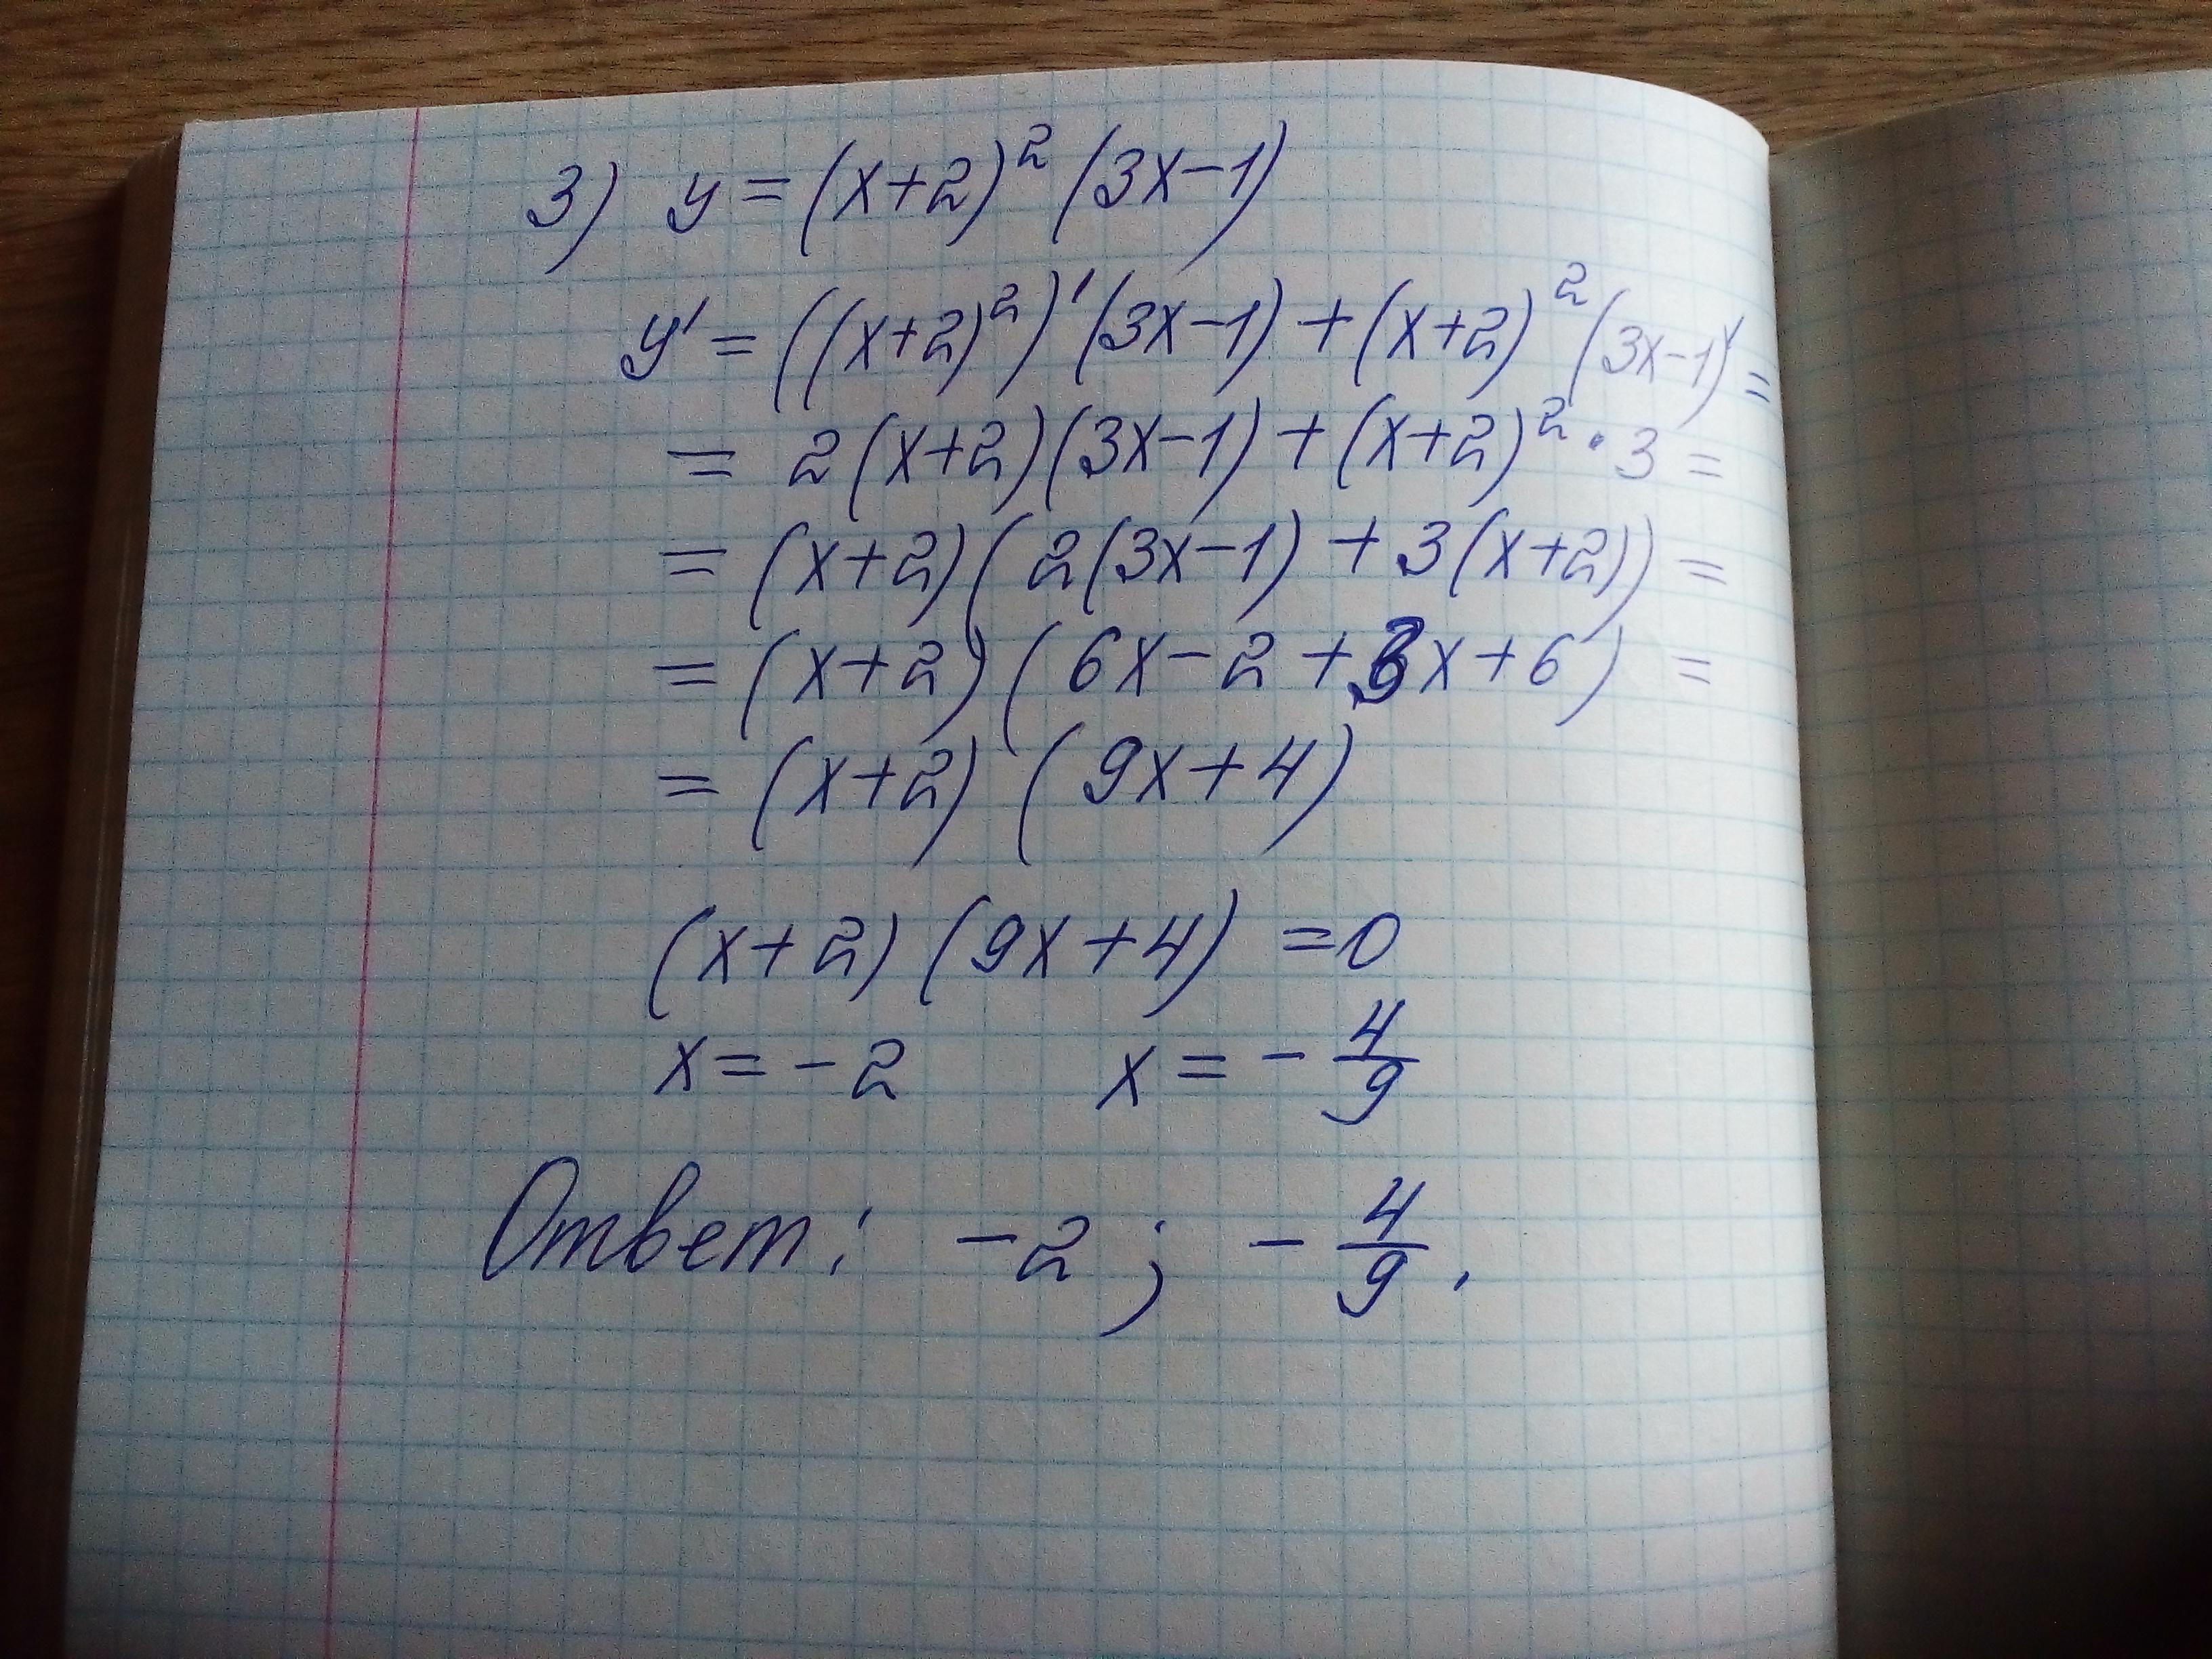 3) y = (x+2)² (3x-1)
y' = ((x+2)²)' (3x-1) + (x+2)² (3x-1)' =
= 2(x+2)(3x-1) + (x+2)² · 3 =
= (x+2)(2(3x-1) + 3(x+2)) =
= (x+2) (6x-2+3x+6) =
= (x+2) (9x+4)
(x+2) (9x+4) = 0
x = -2 x = -4/9
Ответ: -2; -4/9.